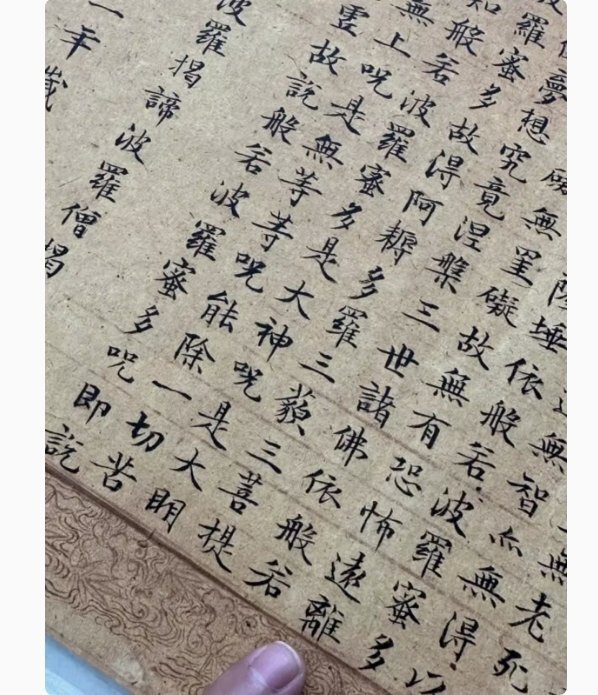 無老死
無智亦無得以
薩埵依般若波羅蜜多
礙無罣礙故無有恐怖遠離
夢想究竟涅槃三世諸佛依般若
羅蜜多故得阿耨多羅三藐三菩提
知般若波羅蜜多是大神咒是大明
無上咒是無等等咒能除一切苦
故說般若波羅蜜多咒即說
波羅揭諦波羅僧揭
一年歲